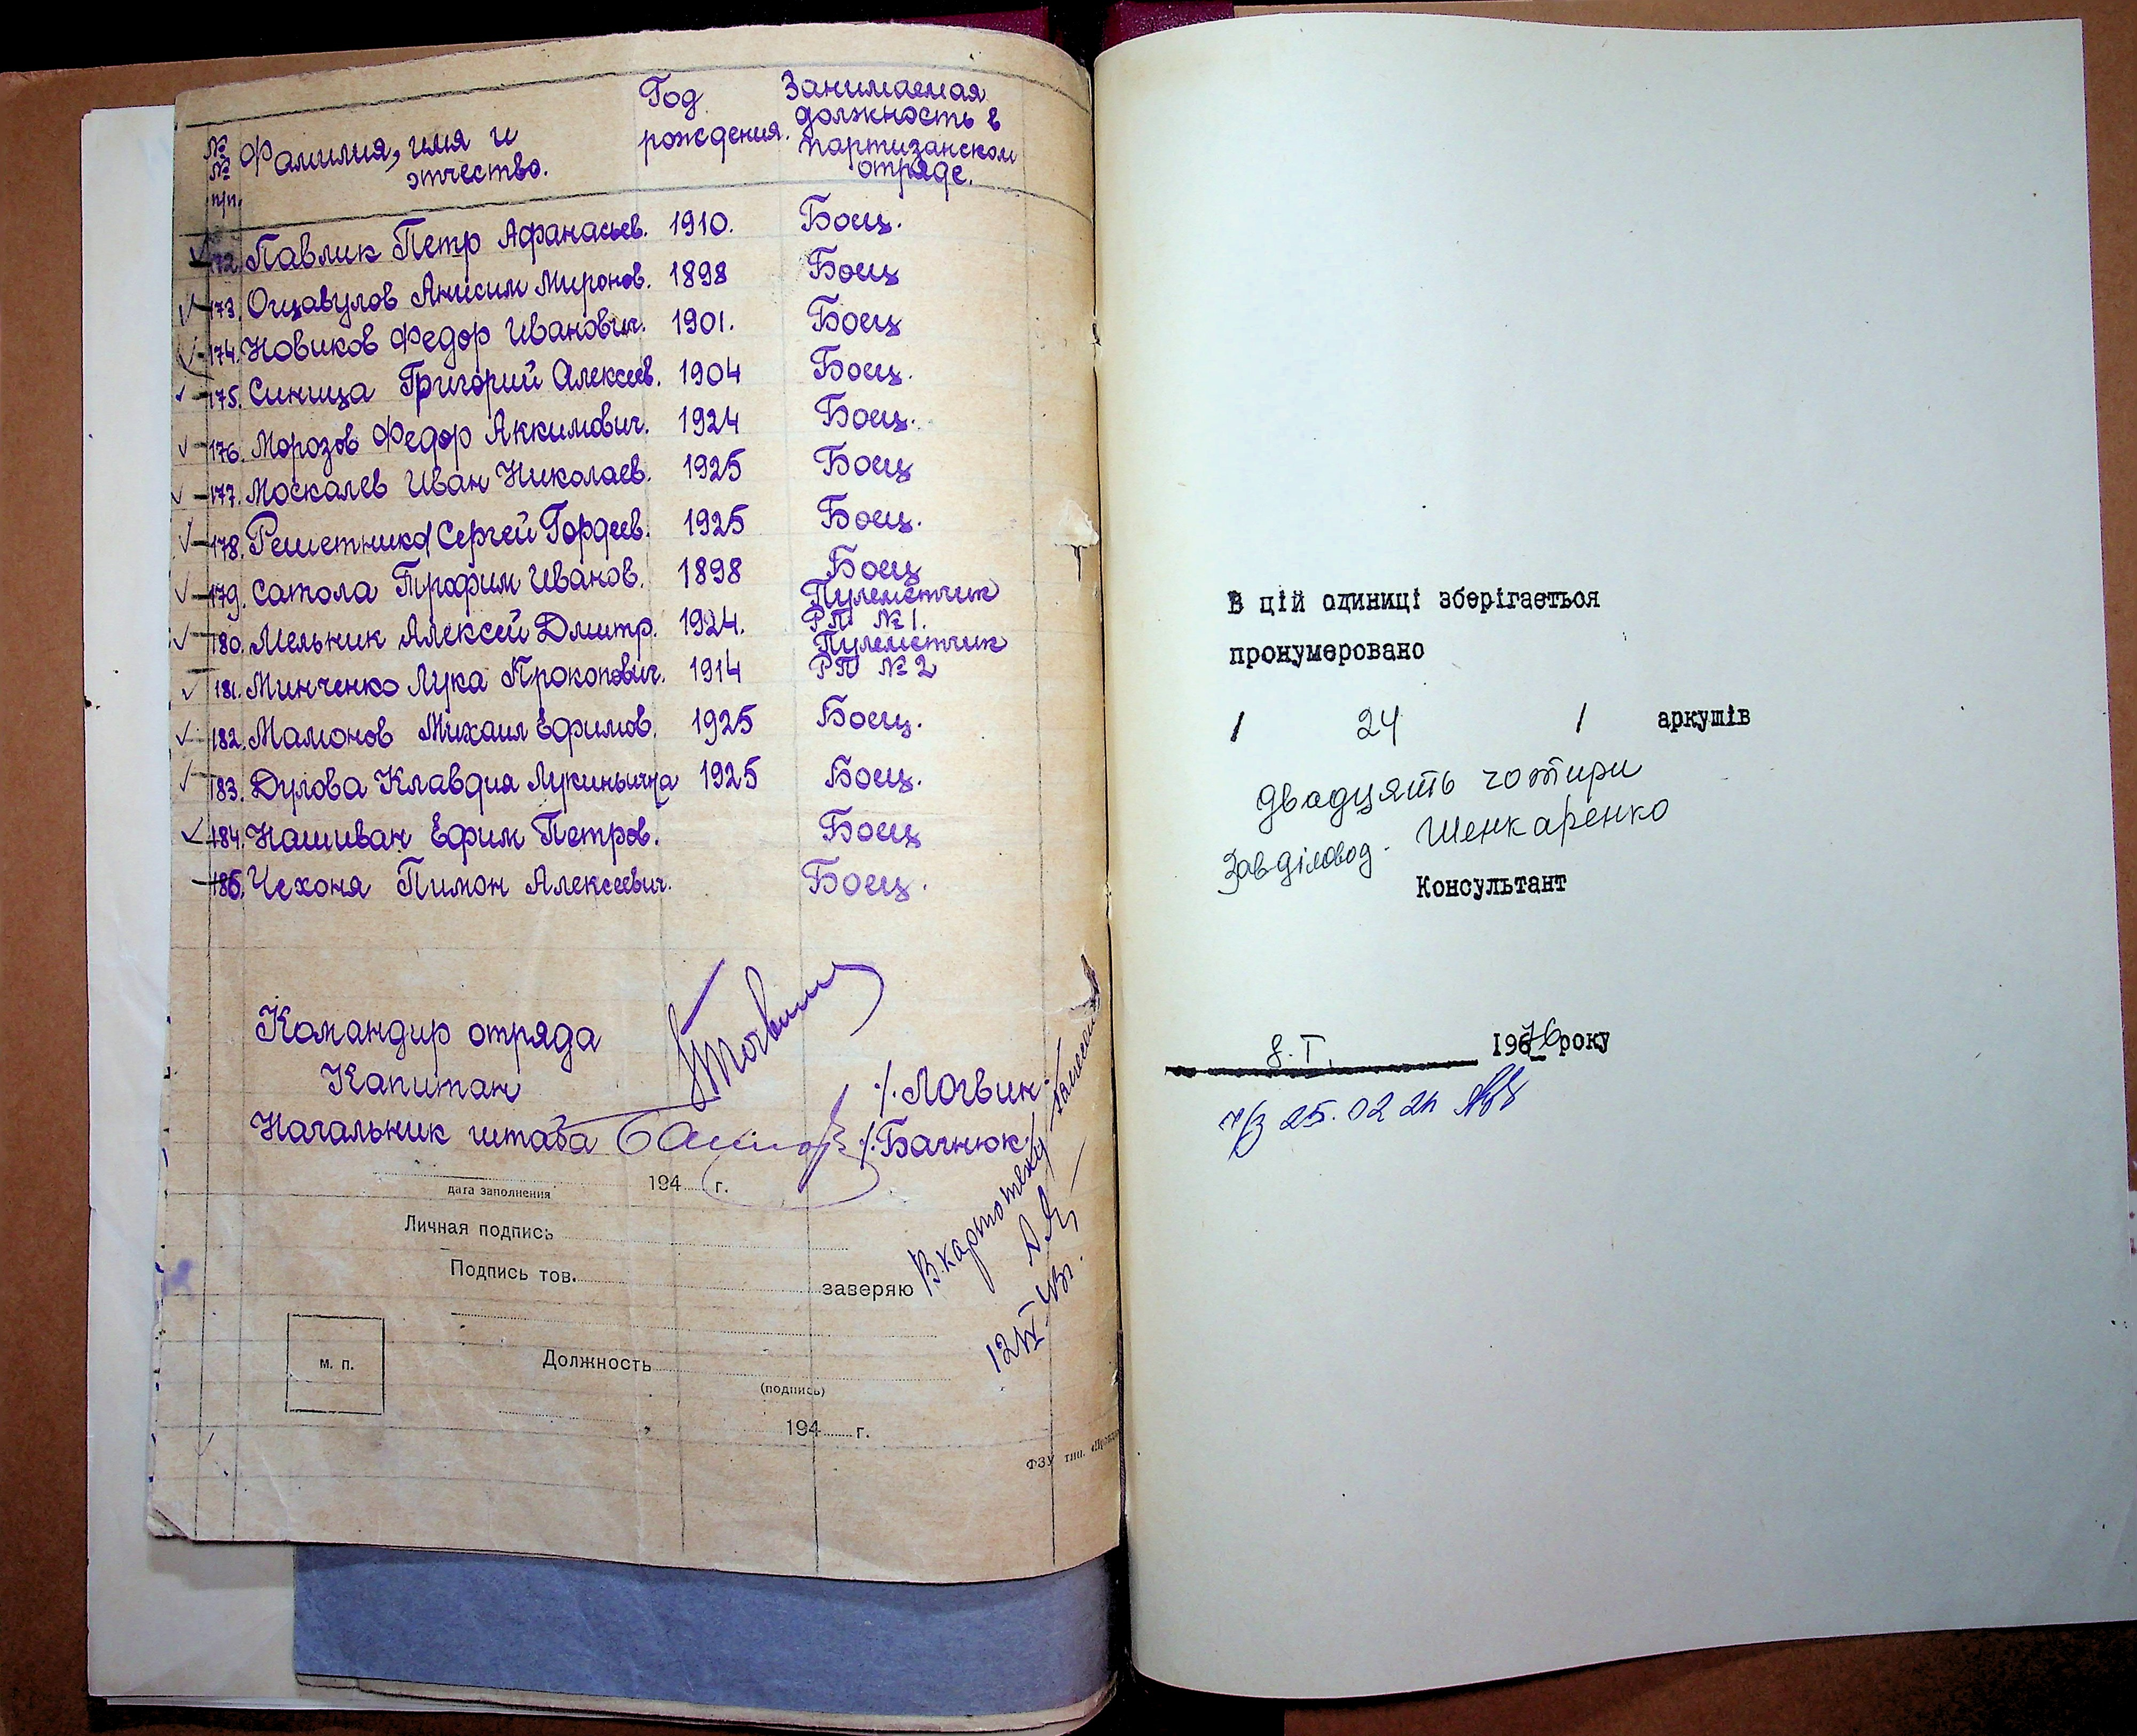 № № п/п.
Фамилия, имя и отчество.
Год рождения.
Занимаемая должность в партизанском отряде.
172. Павлик Петр Афанасьев. 1910. Боец.
173. Ощавулов Анисим Миронов. 1898 Боец
174. Новиков Федор Иванович. 1901. Боец
175. Синица Григорий Алексеев. 1904 Боец.
176. Морозов Федор Аккимович. 1924 Боец.
177. Москалев Иван Николаев. 1925 Боец
178. Решетников Сергей Гордеев. 1925 Боец.
179. Сатола Трофим Иванов. 1898 Боец
180. Мельник Алексей Дмитр. 1924. Пулеметчик РП №1.
181. Минченко Лука Прокопович. 1914 Пулеметчик РП №2
182. Мамонов Михаил Ефимов. 1925 Боец.
183. Дулова Клавдия Лукинична 1925 Боец.
184. Нашиван Ефим Петров. Боец
185. Чехоня Пимон Алексеевич. Боец.
Командир отряда
Капитан /.Логвин
Начальник штаба /.Бачнюк/
дата заполнения 194 г.
Личная подпись
Подпись тов. заверяю
В картотеку
м. п.
Должность
(подпись)
194 г.
ФЗУ тип.
В цій одиниці зберігається
пронумеровано
/ 24 / аркушів
двадцять чотири
Завділовод. Шенкаренко
Консультант
8.I. 1976 року
25.02.21